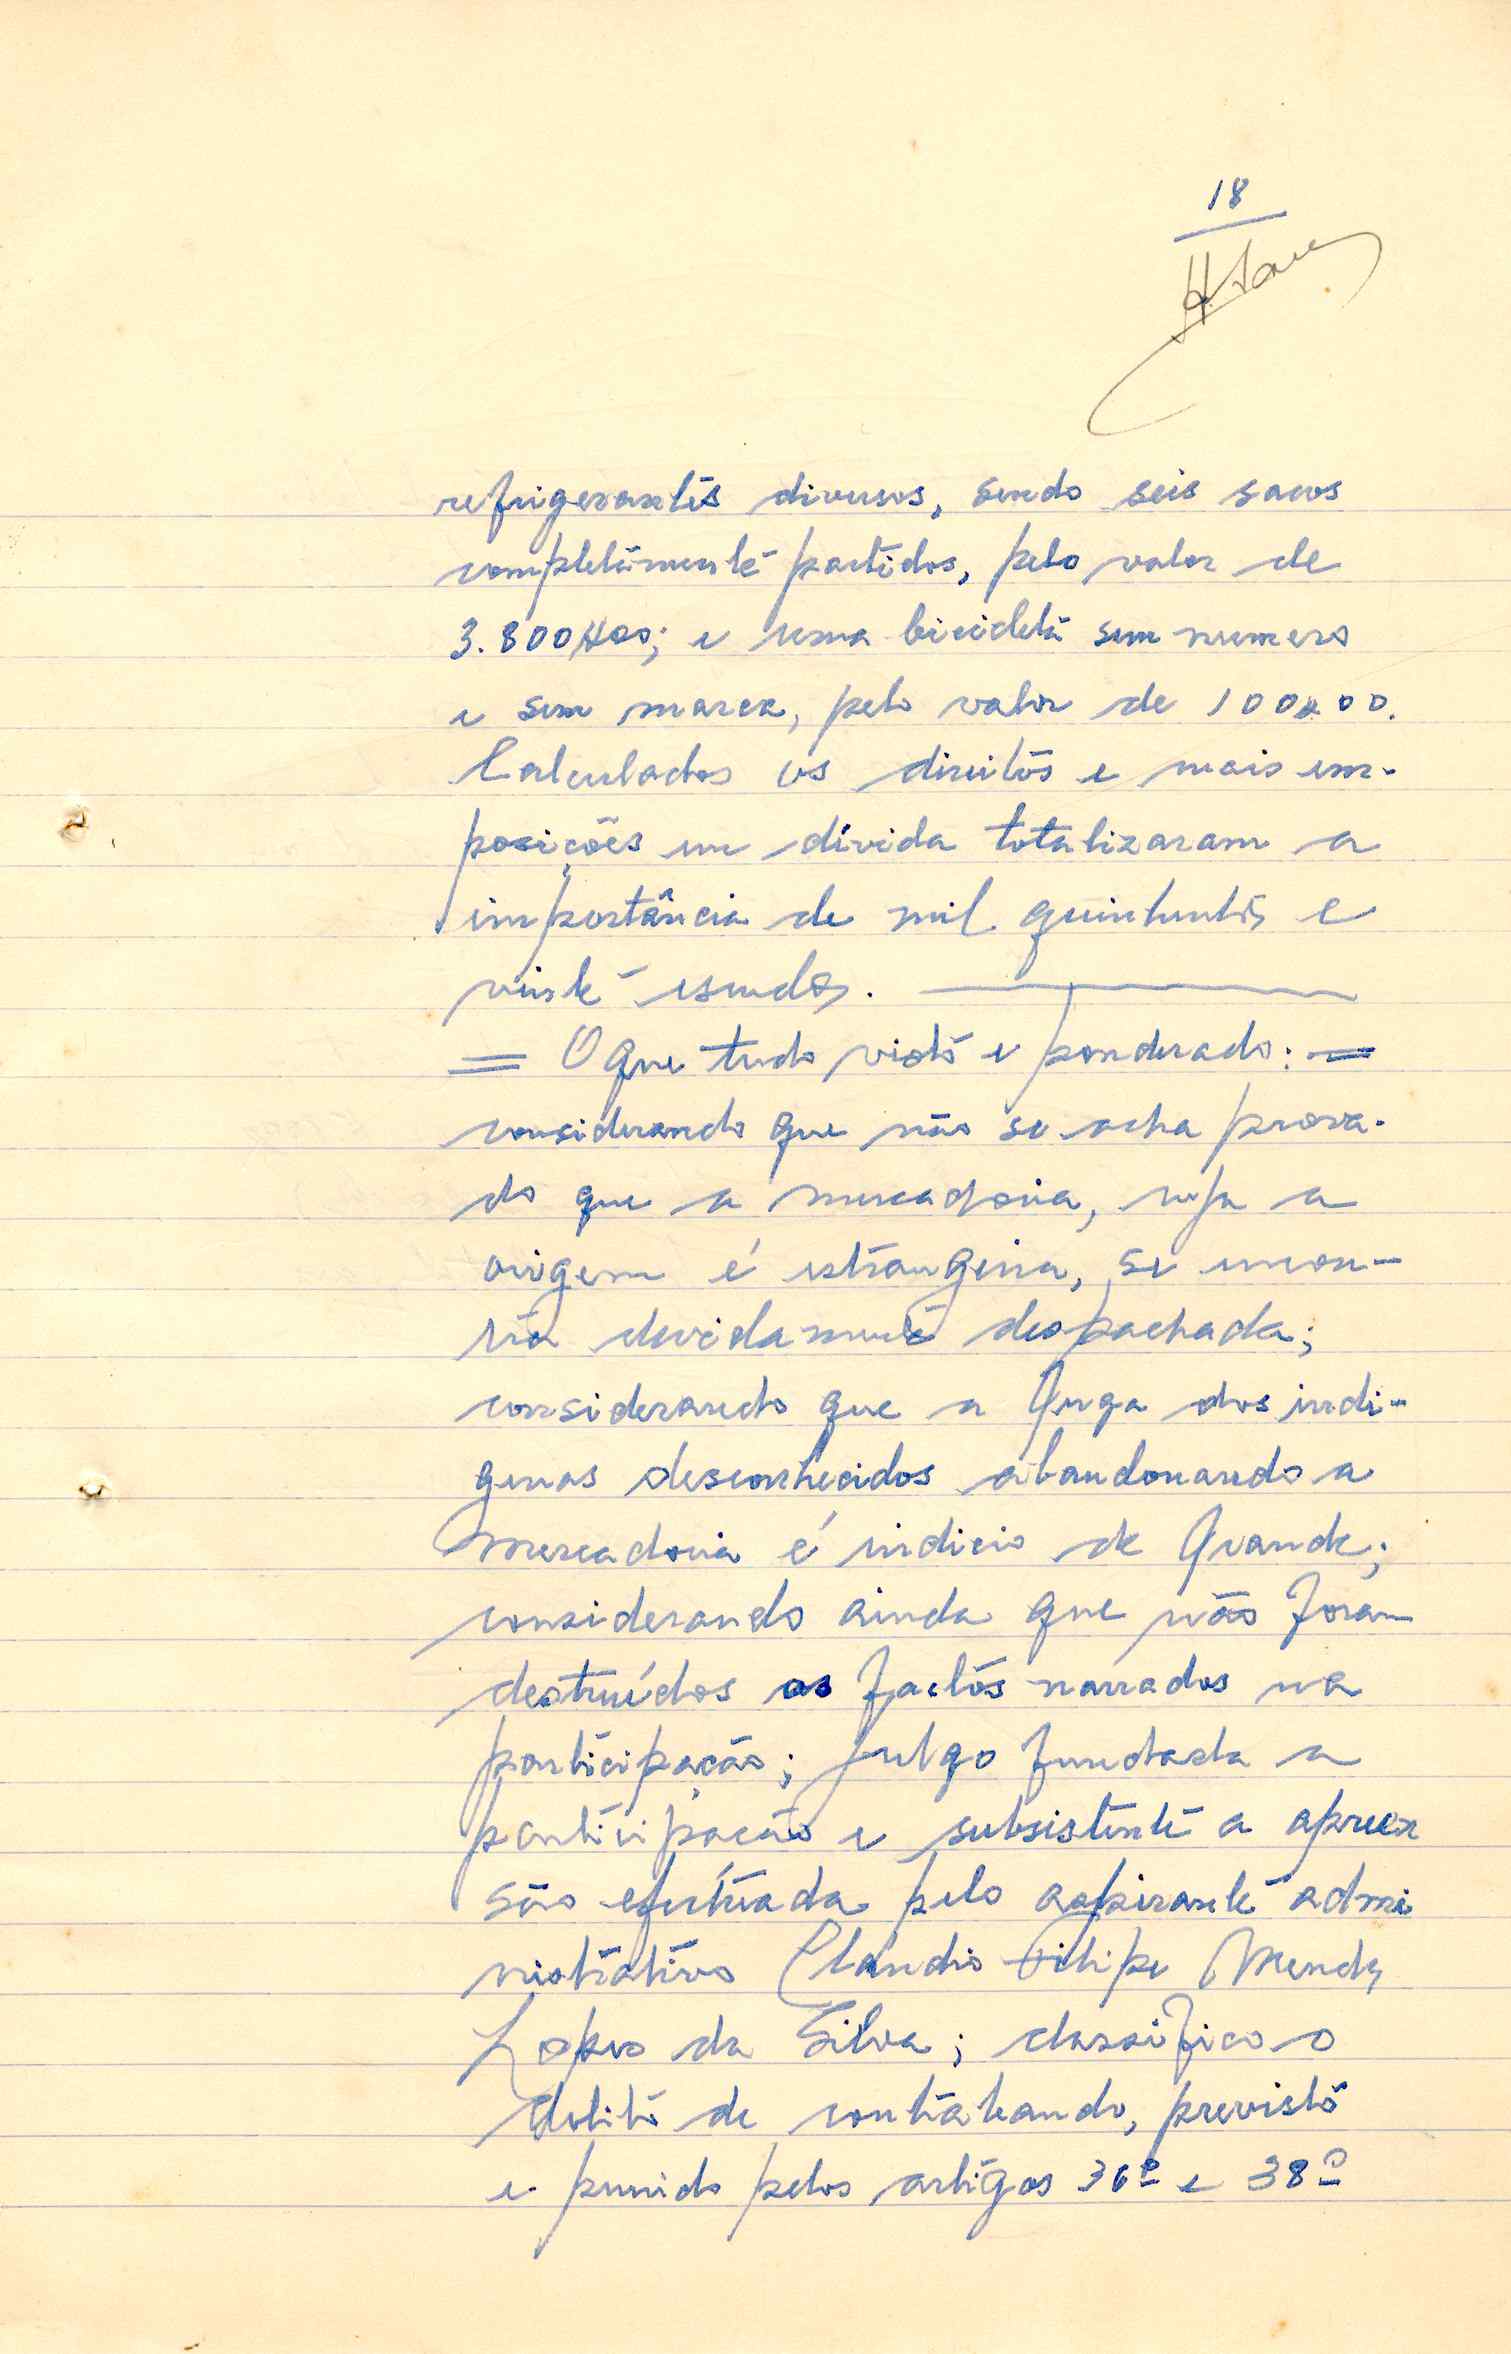 18
refrigerantes diversos, sendo seis sacos
completamente partidos, pelo valor de
3.800$00; e uma bicicleta sem numero
e sem marca, pelo valor de 100$00.
Calculados os direitos e mais im-
posições em dívida totalizaram a
importância de mil quinhentos e
vinte escudos.
= O que tudo visto e ponderado: =
considerando que não se acha prova-
do que a mercadoria, cuja a
origem é estrangeira, se encon-
tra devidamente despachada;
considerando que a fuga dos indi-
genas desconhecidos abandonando a
mercadoria é indicio de fraude;
considerando ainda que não foram
destruídos os factos narrados na
participação; julgo fundada a
participação e subsistente a apreen
são efectuada pelo aspirante admi
nistrativo Claudio Filipe Mendes
Lopes da Silva; classifico o
delito de contrabando, previsto
e punido pelos artigos 36º e 38º